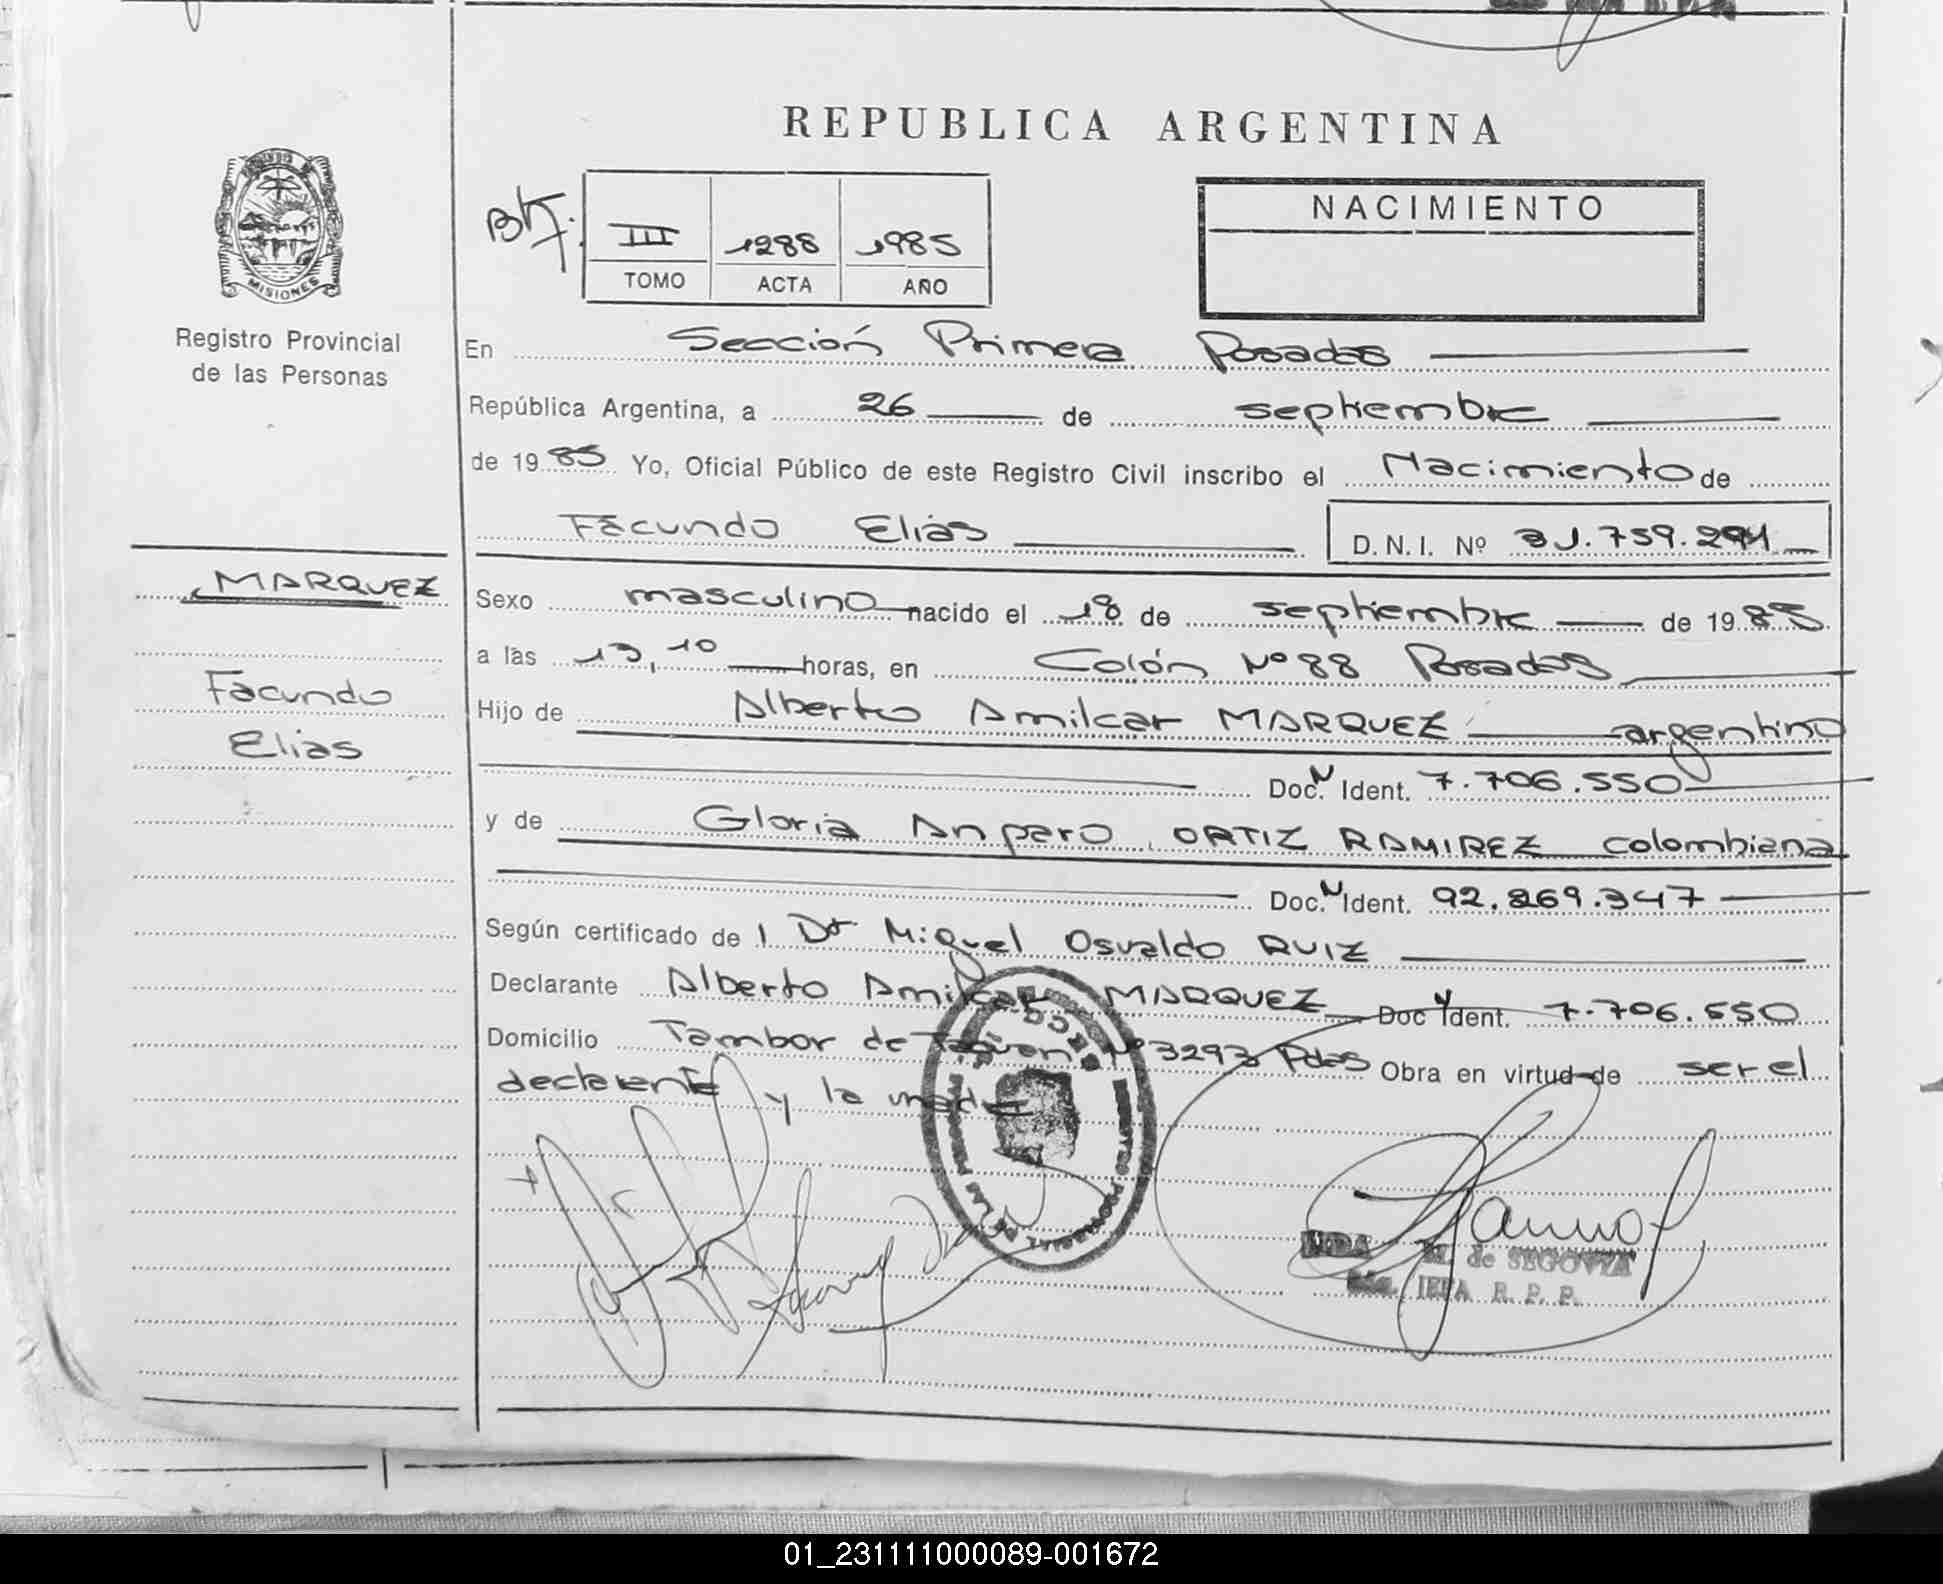 REPUBLICA ARGENTINA
III 1288 1985
TOMO ACTA AÑO
NACIMIENTO
MISIONES
Registro Provincial
de las Personas
En Sección Primera Posadas
República Argentina, a 26 de septiembre
de 1985 Yo, Oficial Público de este Registro Civil inscribo el Nacimiento de
Facundo Elias D.N.I. Nº 31.759.291
MARQUEZ
Facundo
Elias
Sexo masculino nacido el 18 de septiembre de 1985
a las 13,10 horas, en Colón Nº 88 Posadas
Hijo de Alberto Amilcar MARQUEZ argentino
Doc. N Ident. 7.706.550
y de Gloria Anparo ORTIZ RAMIREZ colombiana
Doc. N Ident. 92.869.347
Según certificado de l Dr Miguel Osvaldo RUIZ
Declarante Alberto Amilcar MARQUEZ Doc Ident. 7.706.550
Domicilio Tambor de Nº 3293 Pdas Obra en virtud de ser el
declarante y la madre
M. de SEGOVIA
JEFA R. P. P.
01_231111000089-001672